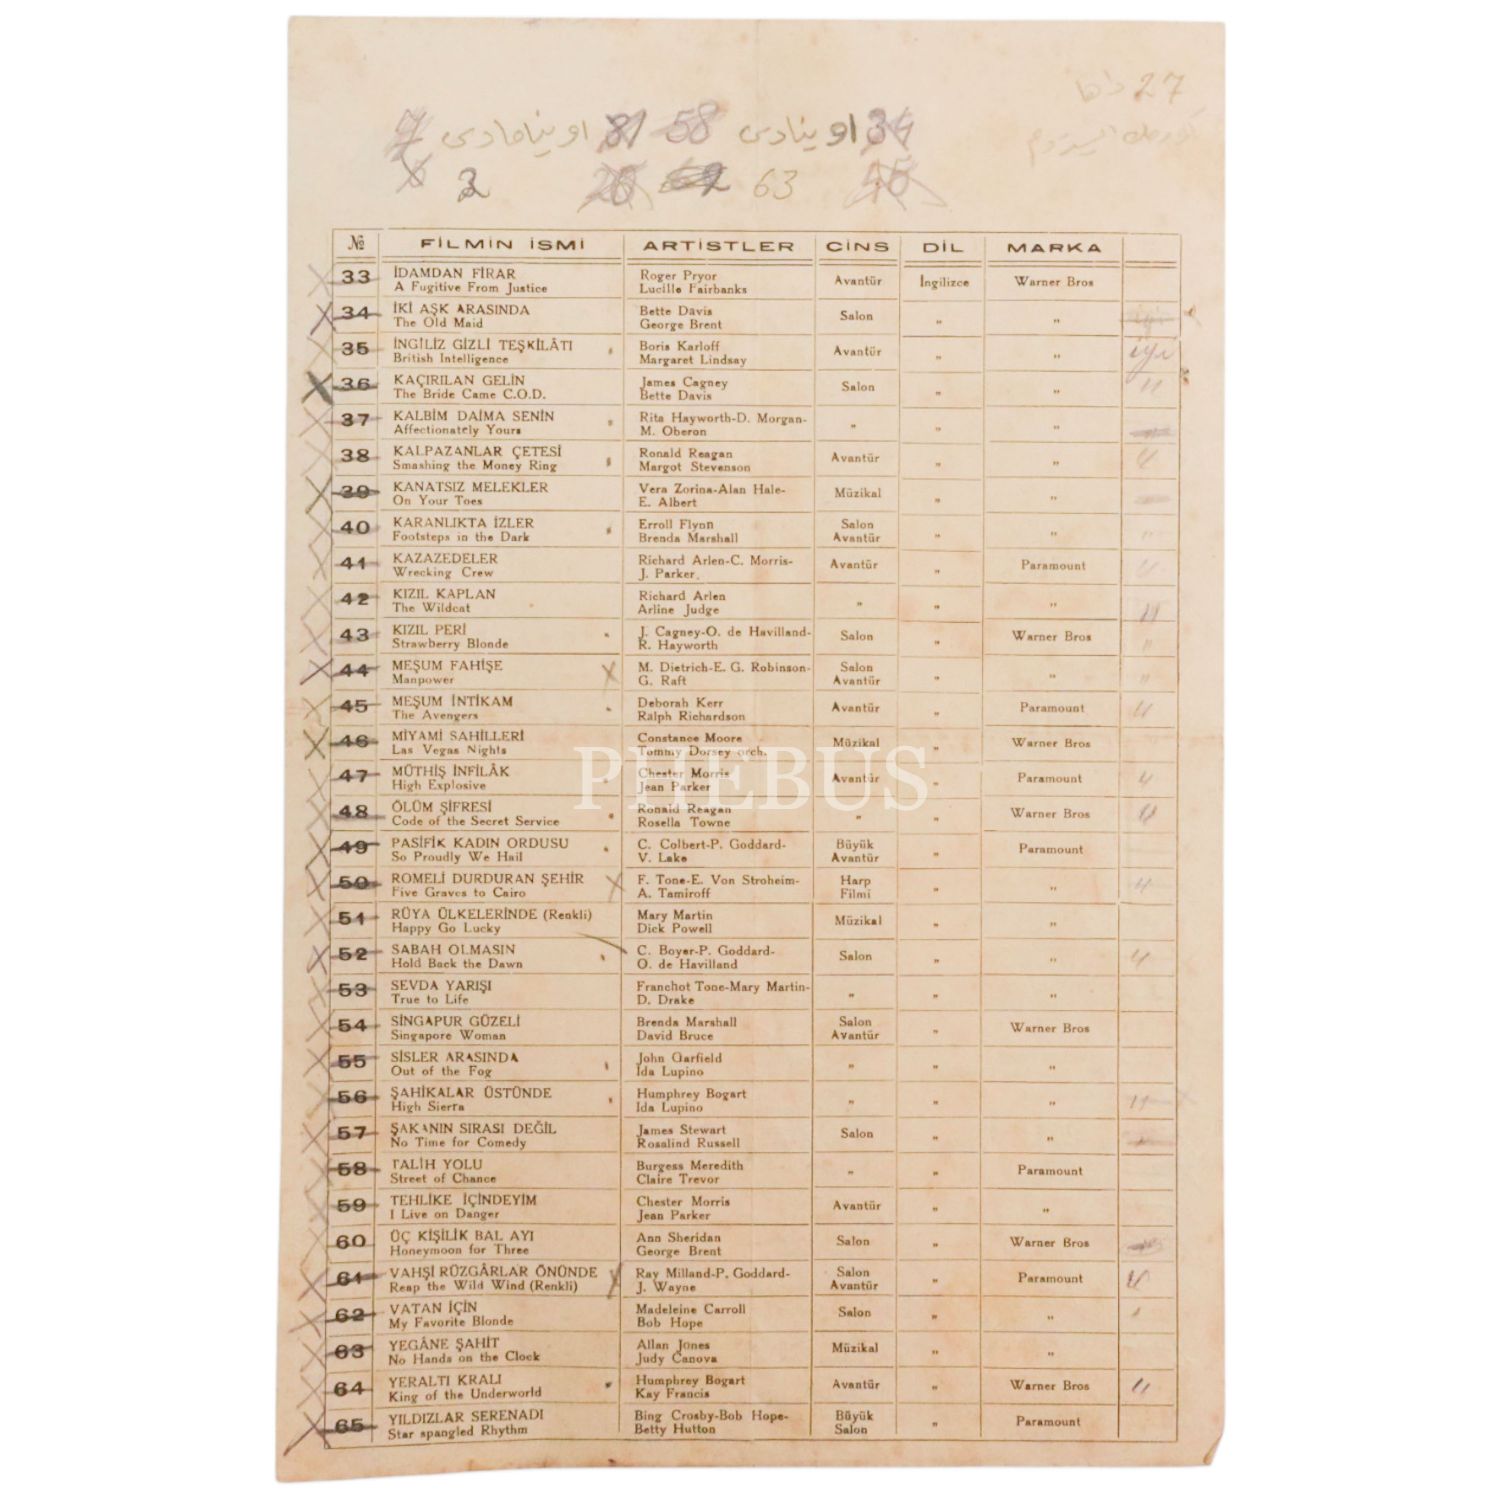 27 دها
7 اوینامادی 81 58 اوینادی 34
3 63
№ FİLMİN İSMİ ARTİSTLER CİNS DİL MARKA
33 İDAMDAN FİRAR Roger Pryor Avantür İngilizce Warner Bros
A Fugitive From Justice Lucille Fairbanks
34 İKİ AŞK ARASINDA Bette Davis Salon „ „
The Old Maid George Brent
35 İNGİLİZ GİZLİ TEŞKİLÂTI Boris Karloff Avantür „ „ iyi
British Intelligence Margaret Lindsay
36 KAÇIRILAN GELİN James Cagney Salon „ „ "
The Bride Came C.O.D. Bette Davis
37 KALBİM DAİMA SENİN Rita Hayworth-D. Morgan- „ „ „
Affectionately Yours M. Oberon
38 KALPAZANLAR ÇETESİ Ronald Reagan Avantür „ „ "
Smashing the Money Ring Margot Stevenson
39 KANATSIZ MELEKLER Vera Zorina-Alan Hale- Müzikal „ „
On Your Toes E. Albert
40 KARANLIKTA İZLER Erroll Flynn Salon „ „ "
Footsteps in the Dark Brenda Marshall Avantür
41 KAZAZEDELER Richard Arlen-C. Morris- Avantür „ Paramount "
Wrecking Crew J. Parker.
42 KIZIL KAPLAN Richard Arlen „ „ „ "
The Wildcat Arline Judge
43 KIZIL PERİ J. Cagney-O. de Havilland- Salon „ Warner Bros "
Strawberry Blonde R. Hayworth
44 MEŞUM FAHİŞE M. Dietrich-E. G. Robinson- Salon „ „ "
Manpower G. Raft Avantür
45 MEŞUM İNTİKAM Deborah Kerr Avantür „ Paramount "
The Avengers Ralph Richardson
46 MİYAMİ SAHİLLERİ Constance Moore Müzikal „ Warner Bros
Las Vegas Nights Tommy Dorsey orch.
PHEBUS
47 MÜTHİŞ İNFİLÂK Chester Morris Avantür „ Paramount "
High Explosive Jean Parker
48 ÖLÜM ŞİFRESİ Ronald Reagan „ „ Warner Bros "
Code of the Secret Service Rosella Towne
49 PASİFİK KADIN ORDUSU C. Colbert-P. Goddard- Büyük „ Paramount
So Proudly We Hail V. Lake Avantür
50 ROMELİ DURDURAN ŞEHİR F. Tone-E. Von Stroheim- Harp „ „ "
Five Graves to Cairo A. Tamiroff Filmi
51 RÜYA ÜLKELERİNDE (Renkli) Mary Martin Müzikal „ „
Happy Go Lucky Dick Powell
52 SABAH OLMASIN C. Boyer-P. Goddard- Salon „ „ "
Hold Back the Dawn O. de Havilland
53 SEVDA YARIŞI Franchot Tone-Mary Martin- „ „ „
True to Life D. Drake
54 SİNGAPUR GÜZELİ Brenda Marshall Salon „ Warner Bros
Singapore Woman David Bruce Avantür
55 SİSLER ARASINDA John Garfield „ „ „
Out of the Fog Ida Lupino
56 ŞAHİKALAR ÜSTÜNDE Humphrey Bogart „ „ „ "
High Sierra Ida Lupino
57 ŞAKANIN SIRASI DEĞİL James Stewart Salon „ „
No Time for Comedy Rosalind Russell
58 TALİH YOLU Burgess Meredith „ „ Paramount
Street of Chance Claire Trevor
59 TEHLİKE İÇİNDEYİM Chester Morris Avantür „ „
I Live on Danger Jean Parker
60 ÜÇ KİŞİLİK BAL AYI Ann Sheridan Salon „ Warner Bros
Honeymoon for Three George Brent
61 VAHŞİ RÜZGÂRLAR ÖNÜNDE Ray Milland-P. Goddard- Salon „ Paramount "
Reap the Wild Wind (Renkli) J. Wayne Avantür
62 VATAN İÇİN Madeleine Carroll Salon „ „
My Favorite Blonde Bob Hope
63 YEGÂNE ŞAHİT Allan Jones Müzikal „ „
No Hands on the Clock Judy Canova
64 YERALTI KRALI Humphrey Bogart Avantür „ Warner Bros "
King of the Underworld Kay Francis
65 YILDIZLAR SERENADI Bing Crosby-Bob Hope- Büyük „ Paramount
Star spangled Rhythm Betty Hutton Salon